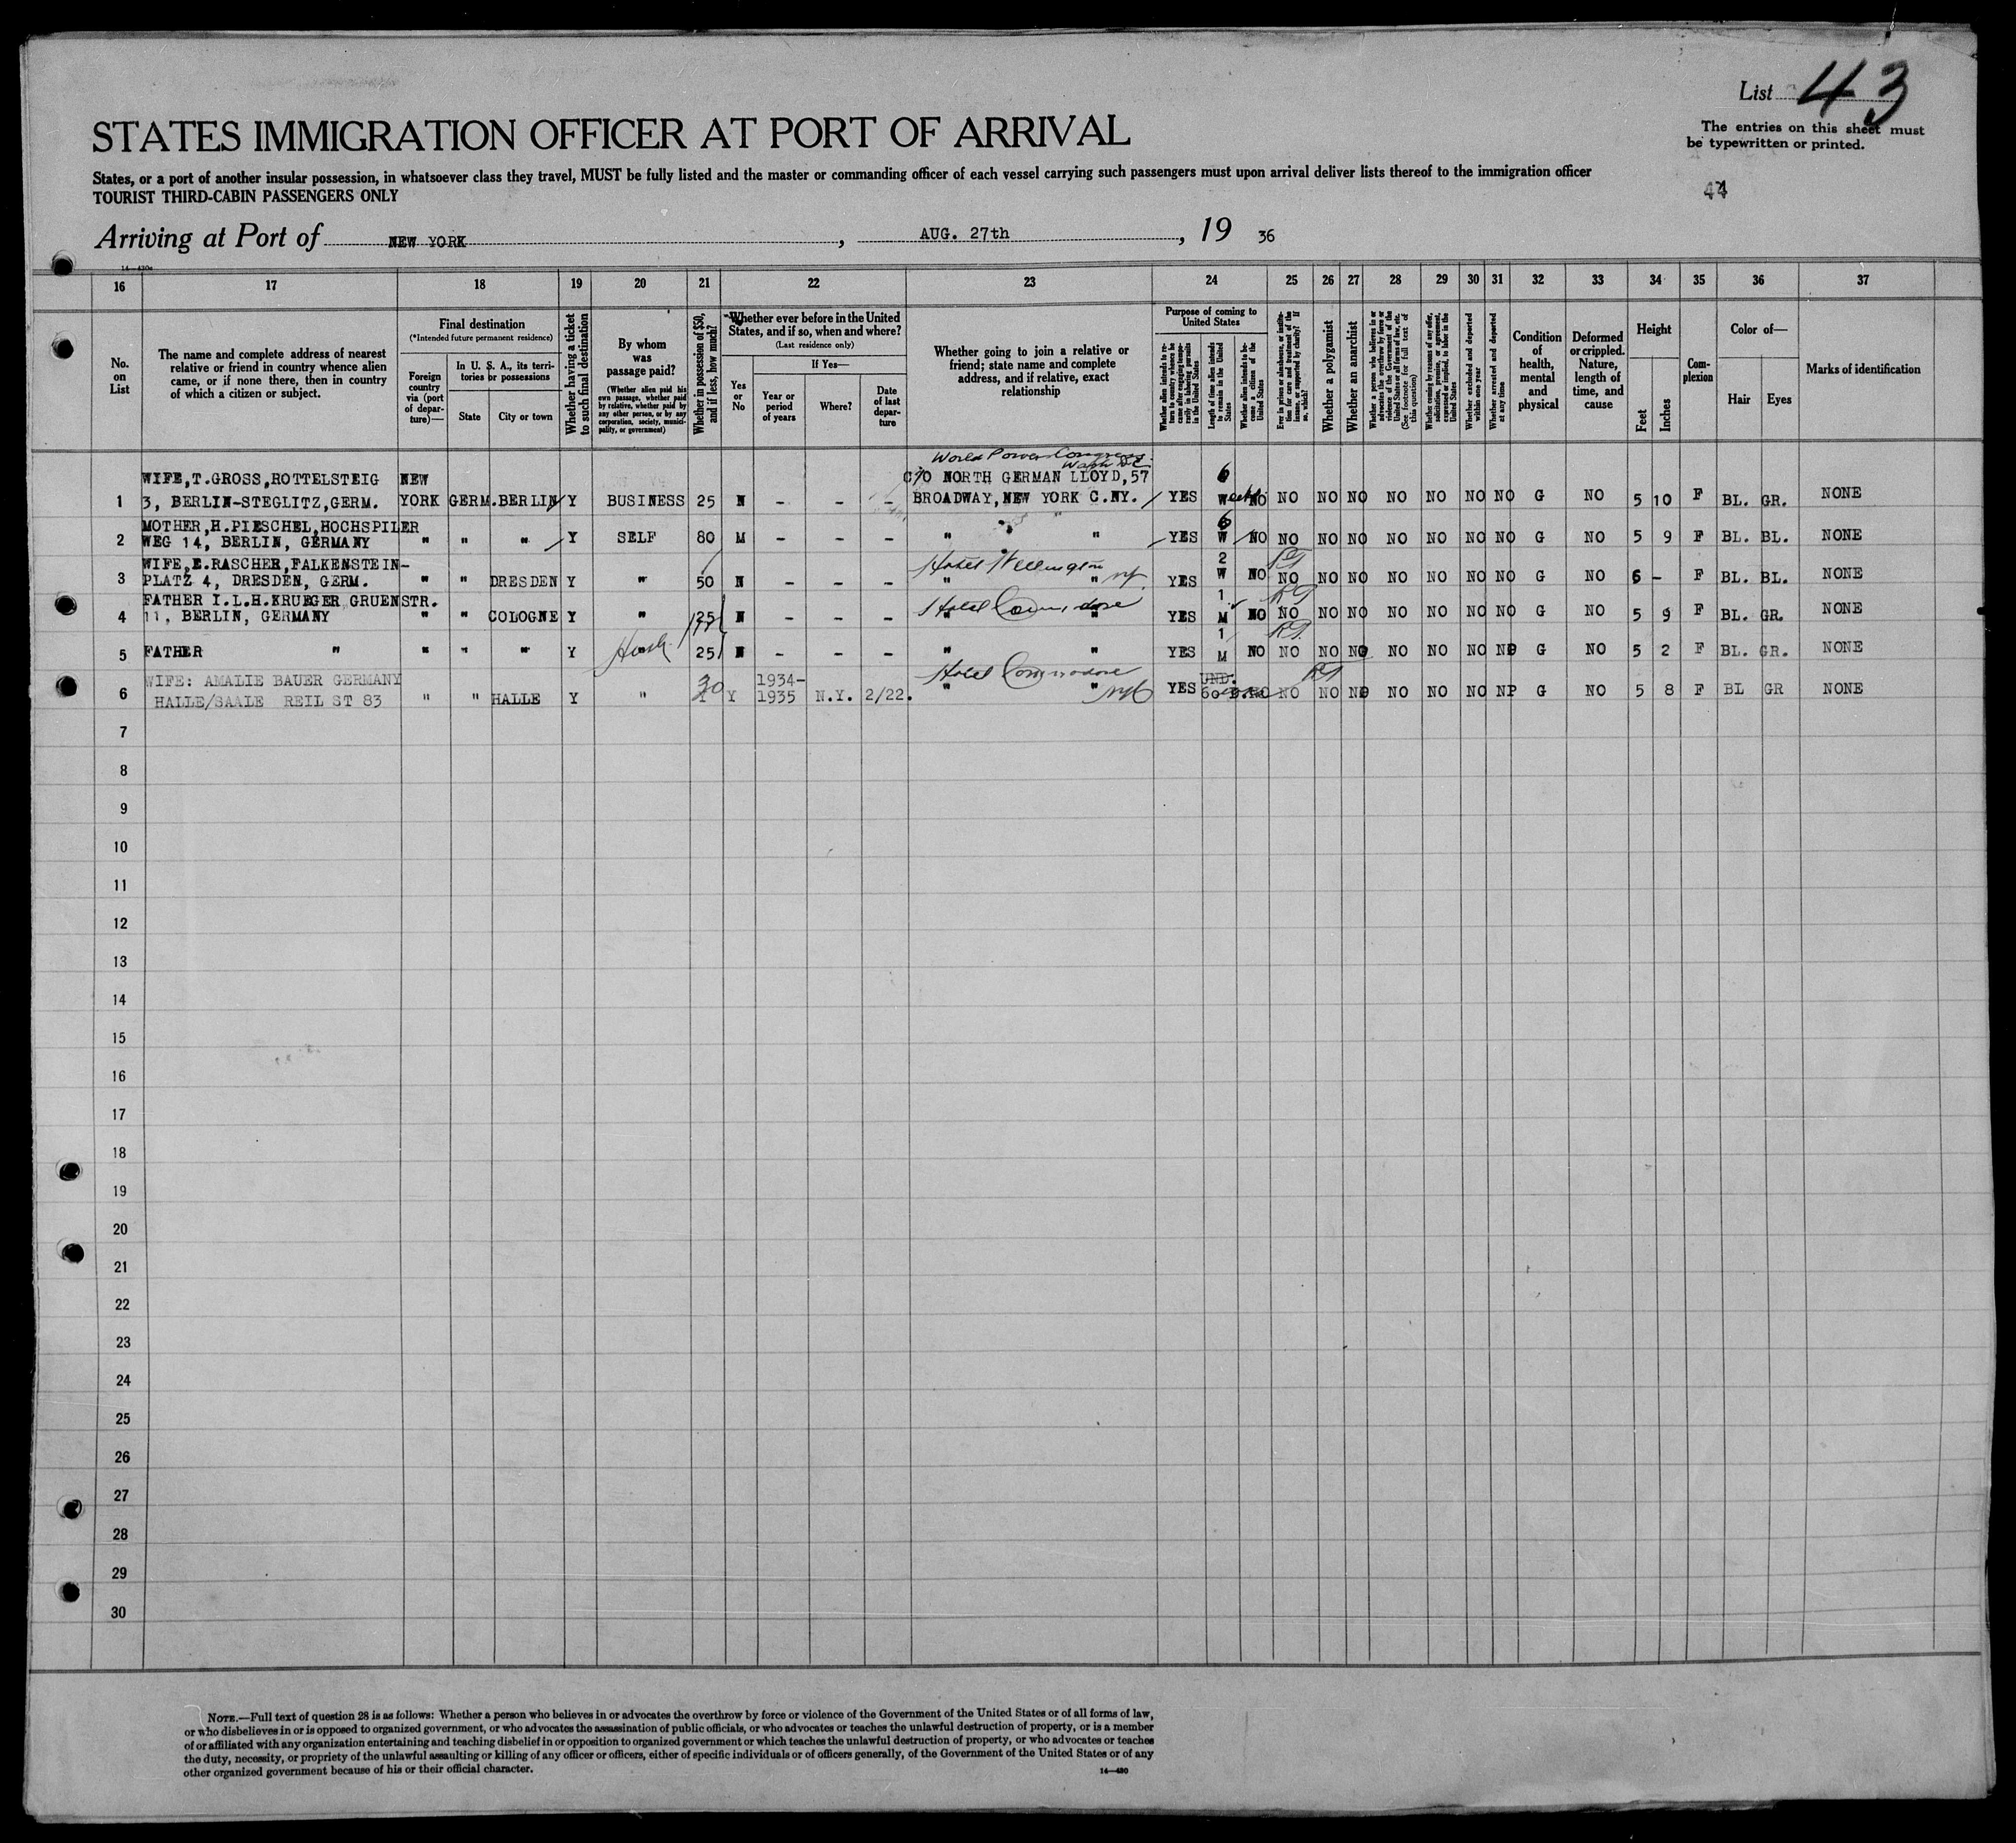 List 43
STATES IMMIGRATION OFFICER AT PORT OF ARRIVAL
The entries on this sheet must
be typewritten or printed.
States, or a port of another insular possession, in whatsoever class they travel, MUST be fully listed and the master or commanding officer of each vessel carrying such passengers must upon arrival deliver lists thereof to the immigration officer
TOURIST THIRD-CABIN PASSENGERS ONLY
44
Arriving at Port of NEW YORK, AUG. 27th, 19 36
16 17 18 19 20 21 22 23 24 25 26 27 28 29 30 31 32 33 34 35 36 37
No. on List
The name and complete address of nearest
relative or friend in country whence alien
came, or if none there, then in country
of which a citizen or subject.
Final destination
(*Intended future permanent residence)
Foreign country via (port of departure)—
In U. S. A., its territories or possessions
State
City or town
Whether having a ticket to such final destination
By whom was passage paid?
(Whether alien paid his own passage, whether paid by relative, whether paid by any other person, or by any corporation, society, municipality, or government)
Whether in possession of $50, and if less, how much?
Whether ever before in the United States, and if so, when and where?
(Last residence only)
Yes or No
If Yes—
Year or period of years
Where?
Date of last departure
Whether going to join a relative or
friend; state name and complete
address, and if relative, exact
relationship
Purpose of coming to United States
Whether alien intends to return to country whence he came after engaging temporarily in laboring pursuits in the United States
Length of time alien intends to remain in the United States
Whether alien intends to become a citizen of the United States
Ever in prison or almshouse, or institution for care and treatment of the insane, or supported by charity? If so, which?
Whether a polygamist
Whether an anarchist
Whether a person who believes in or advocates the overthrow by force or violence of the Government of the United States or all forms of law, etc. (See footnote for full text of this question)
Whether coming by reason of any offer, solicitation, promise, or agreement, expressed or implied, to labor in the United States
Whether excluded and deported within one year
Whether arrested and deported at any time
Condition of health, mental and physical
Deformed or crippled. Nature, length of time, and cause
Height
Feet
Inches
Complexion
Color of—
Hair
Eyes
Marks of identification
World Power Congress
Wash DC
1 WIFE,T.GROSS,ROTTELSTEIG NEW C/O NORTH GERMAN LLOYD,57 6
3, BERLIN-STEGLITZ,GERM. YORK GERM.BERLIN Y BUSINESS 25 N - - - BROADWAY,NEW YORK C.NY. YES Weeks NO NO NO NO NO NO NO NO G NO 5 10 F BL. GR. NONE
2 MOTHER,H.PIESCHEL,HOCHSPILER 6
WEG 14, BERLIN, GERMANY " " " Y SELF 80 M - - - " " YES W NO NO NO NO NO NO NO NO G NO 5 9 F BL. BL. NONE
3 WIFE,E.RASCHER,FALKENSTEIN- Hotel Wellington 2
PLATZ 4, DRESDEN, GERM. " " DRESDEN Y " 50 N - - - " " NY YES W NO NO NO NO NO NO NO NO G NO 6 - F BL. BL. NONE
4 FATHER I.L.H.KRUEGER GRUENSTR. Hotel Commodore 1
11, BERLIN, GERMANY " " COLOGNE Y " 25 N - - - " " YES M NO NO NO NO NO NO NO NO G NO 5 9 F BL. GR. NONE
1
5 FATHER " " " " Y " 25 N - - - " " YES M NO NO NO NO NO NO NO NO G NO 5 2 F BL. GR. NONE
6 WIFE: AMALIE BAUER GERMANY 30 1934- Hotel Commodore UND.
HALLE/SAALE REIL ST 83 " " HALLE Y " Y 1935 N.Y. 2/22. " " NYC YES 60 NO NO NO NO NO NO NO G NO 5 8 F BL GR NONE
7
8
9
10
11
12
13
14
15
16
17
18
19
20
21
22
23
24
25
26
27
28
29
30
NOTE.—Full text of question 28 is as follows: Whether a person who believes in or advocates the overthrow by force or violence of the Government of the United States or of all forms of law,
or who disbelieves in or is opposed to organized government, or who advocates the assassination of public officials, or who advocates or teaches the unlawful destruction of property, or is a member
of or affiliated with any organization entertaining and teaching disbelief in or opposition to organized government or which teaches the unlawful destruction of property, or who advocates or teaches
the duty, necessity, or propriety of the unlawful assaulting or killing of any officer or officers, either of specific individuals or of officers generally, of the Government of the United States or of any
other organized government because of his or their official character.
14—430